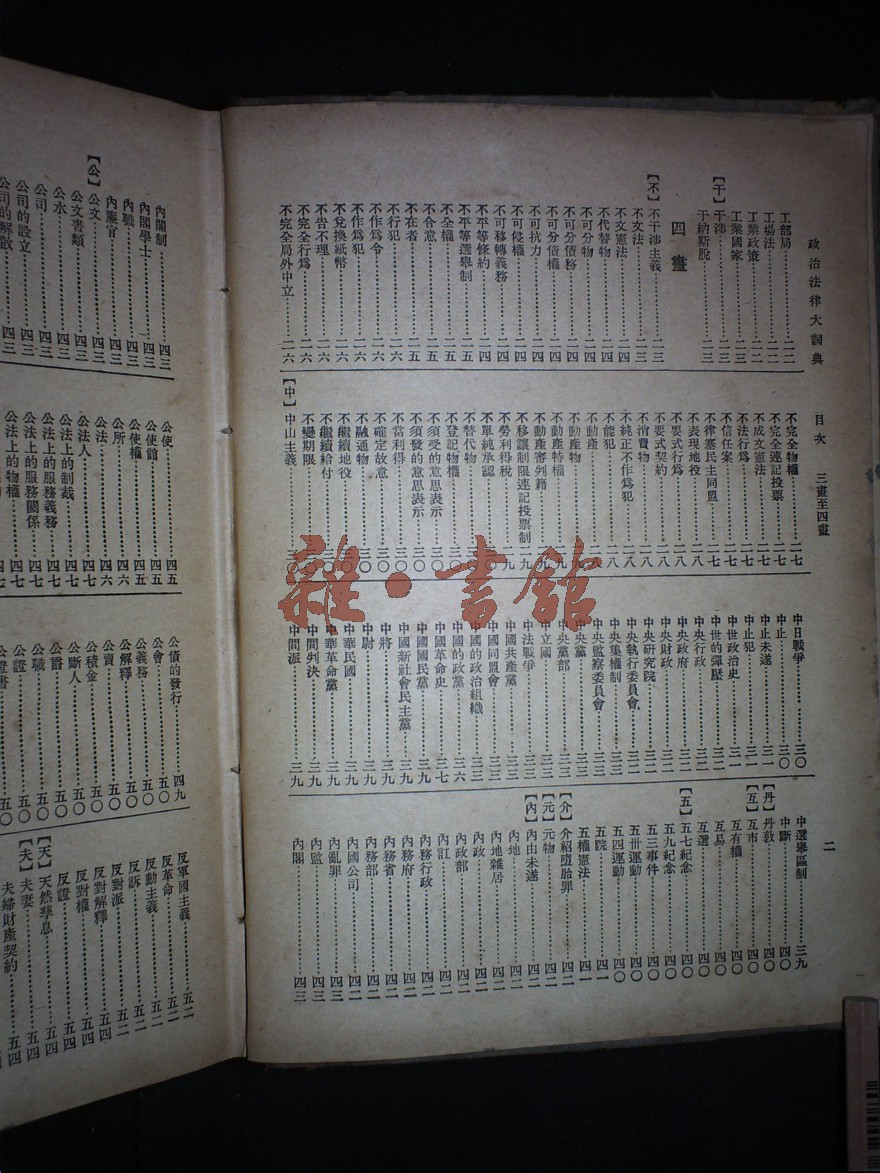 政治法律大詞典 目次 三畫至四畫 二
工部局……二二
工場法……二二
工業政策……二二
工業國家……二三
【干】干涉……二三
干納斯脫……二三
四畫
【不】不干涉主義……二三
不文法……二四
不文憲法……二四
不代替物……二四
不可分物……二四
不可分債務……二四
不可分債權……二四
不可抗力……二四
不可侵權……二四
不可移轉義務……二四
不平等條約……二四
不平等選舉制……二五
不全權……二五
不合意……二五
不在者……二五
不行犯……二六
不作為令……二六
不作為犯……二六
不兌換紙幣……二六
不告不理……二六
不完全行為……二六
不完全局外中立……二六
不完全物權……二七
不完全連記投票……二七
不成文憲法……二七
不法行為……二七
不信任案……二七
不律塞民主同盟……二七
不表現地役……二八
不要式行為……二八
不要式契約……二八
不消費物……二八
不純正不作為犯……二八
不能犯……二八
不動產……二八
不動產物……二九
不動產特權……二九
不動產審判籍……二九
不移讓制限連記投票制……二九
不勞利得稅……二九
不單純承認……三〇
不替代物……三〇
不登記物權……三〇
不須受的意思表示……三〇
不須發的意思表示……三〇
不當利得……三〇
不確定故意……三〇
不融通物……三〇
不繼續地役
不繼續給付
不變期限
【中】中山主義
中日戰爭……三〇
中止……三〇
中止未遂……三一
中止犯……三一
中世政治史……三一
中世的彈壓……三二
中央行政……三二
中央政府……三二
中央財政……三二
中央研究院……三二
中央執行委員會……三二
中央集權制……三三
中央監察委員會……三三
中央黨……三三
中央黨部……三三
中立國……三三
中法戰爭……三三
中國共產黨……三三
中國同盟會……三三
中國的政治組織……三三
中國的政黨……三六
中國革命史……三七
中國國民黨……三九
中國新社會民主黨……三九
中將……三九
中尉……三九
中華民國……三九
中華革命黨……三九
中間判決……三九
中間派……三九
中選舉區制……三九
中斷……四〇
【丹】丹敦……四〇
【互】互市……四〇
互有權……四〇
互易……四〇
互選……四〇
【五】五七紀念……四〇
五九紀念……四〇
五三事件……四〇
五卅運動……四〇
五四運動……四〇
五院……四一
五權憲法……四一
【介】介紹墮胎罪……四二
【元】元物……四二
【內】內由未遂……四二
內地……四二
內地雜居……四二
內政……四二
內政部……四二
內訌……四二
內務行政……四二
內務府……四二
內務省……四二
內務部……四二
內國公司……四二
內亂罪……四三
內監……四三
內閣……四三
內閣制……四三
內閣學士……四三
內職……四三
內簾官……四三
【公】公文……四三
公文書類……四三
公水……四三
公司……四三
公司的設立……四三
公司的解散
公使……四五
公使館……四五
公使權……四五
公所……四六
公法……四六
公法人……四七
公法上的制裁……四七
公法上的服務義務……四七
公法上的服務關係……四七
公法上的物權……四七
公債的發行……四九
公會……五〇
公義務……五〇
公解釋……五〇
公賣……五〇
公積金……五〇
公斷人……五〇
公爵……五〇
公職……五〇
公證……五〇
公證書……五〇
反軍國主義……五二
反動主義……五二
反訴……五二
反對派……五二
反對解釋……五四
反對權……五四
反證……五四
【天】天然孳息……五四
【夫】夫妻……五四
夫婦財產契約……五四
雜·書館